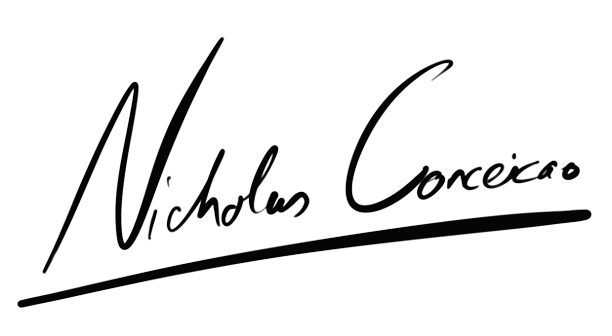 Nicholas Conceicao